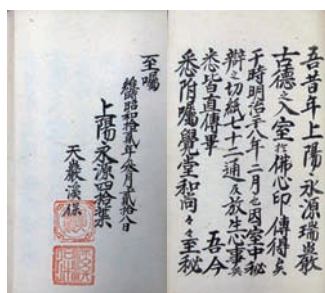 吾昔年上陽之永源瑞巖
古德之入室於佛心印傳得矣
于時明治三八年二月也因室中秘
辨之切紙七十二通及放生心事矣
悉皆直傳畢 吾今
悉附囑覺堂和尚々々至秘
至囑
維時昭和拾貳年參月貳拾八日
上陽永源四拾葉
天巖溪保